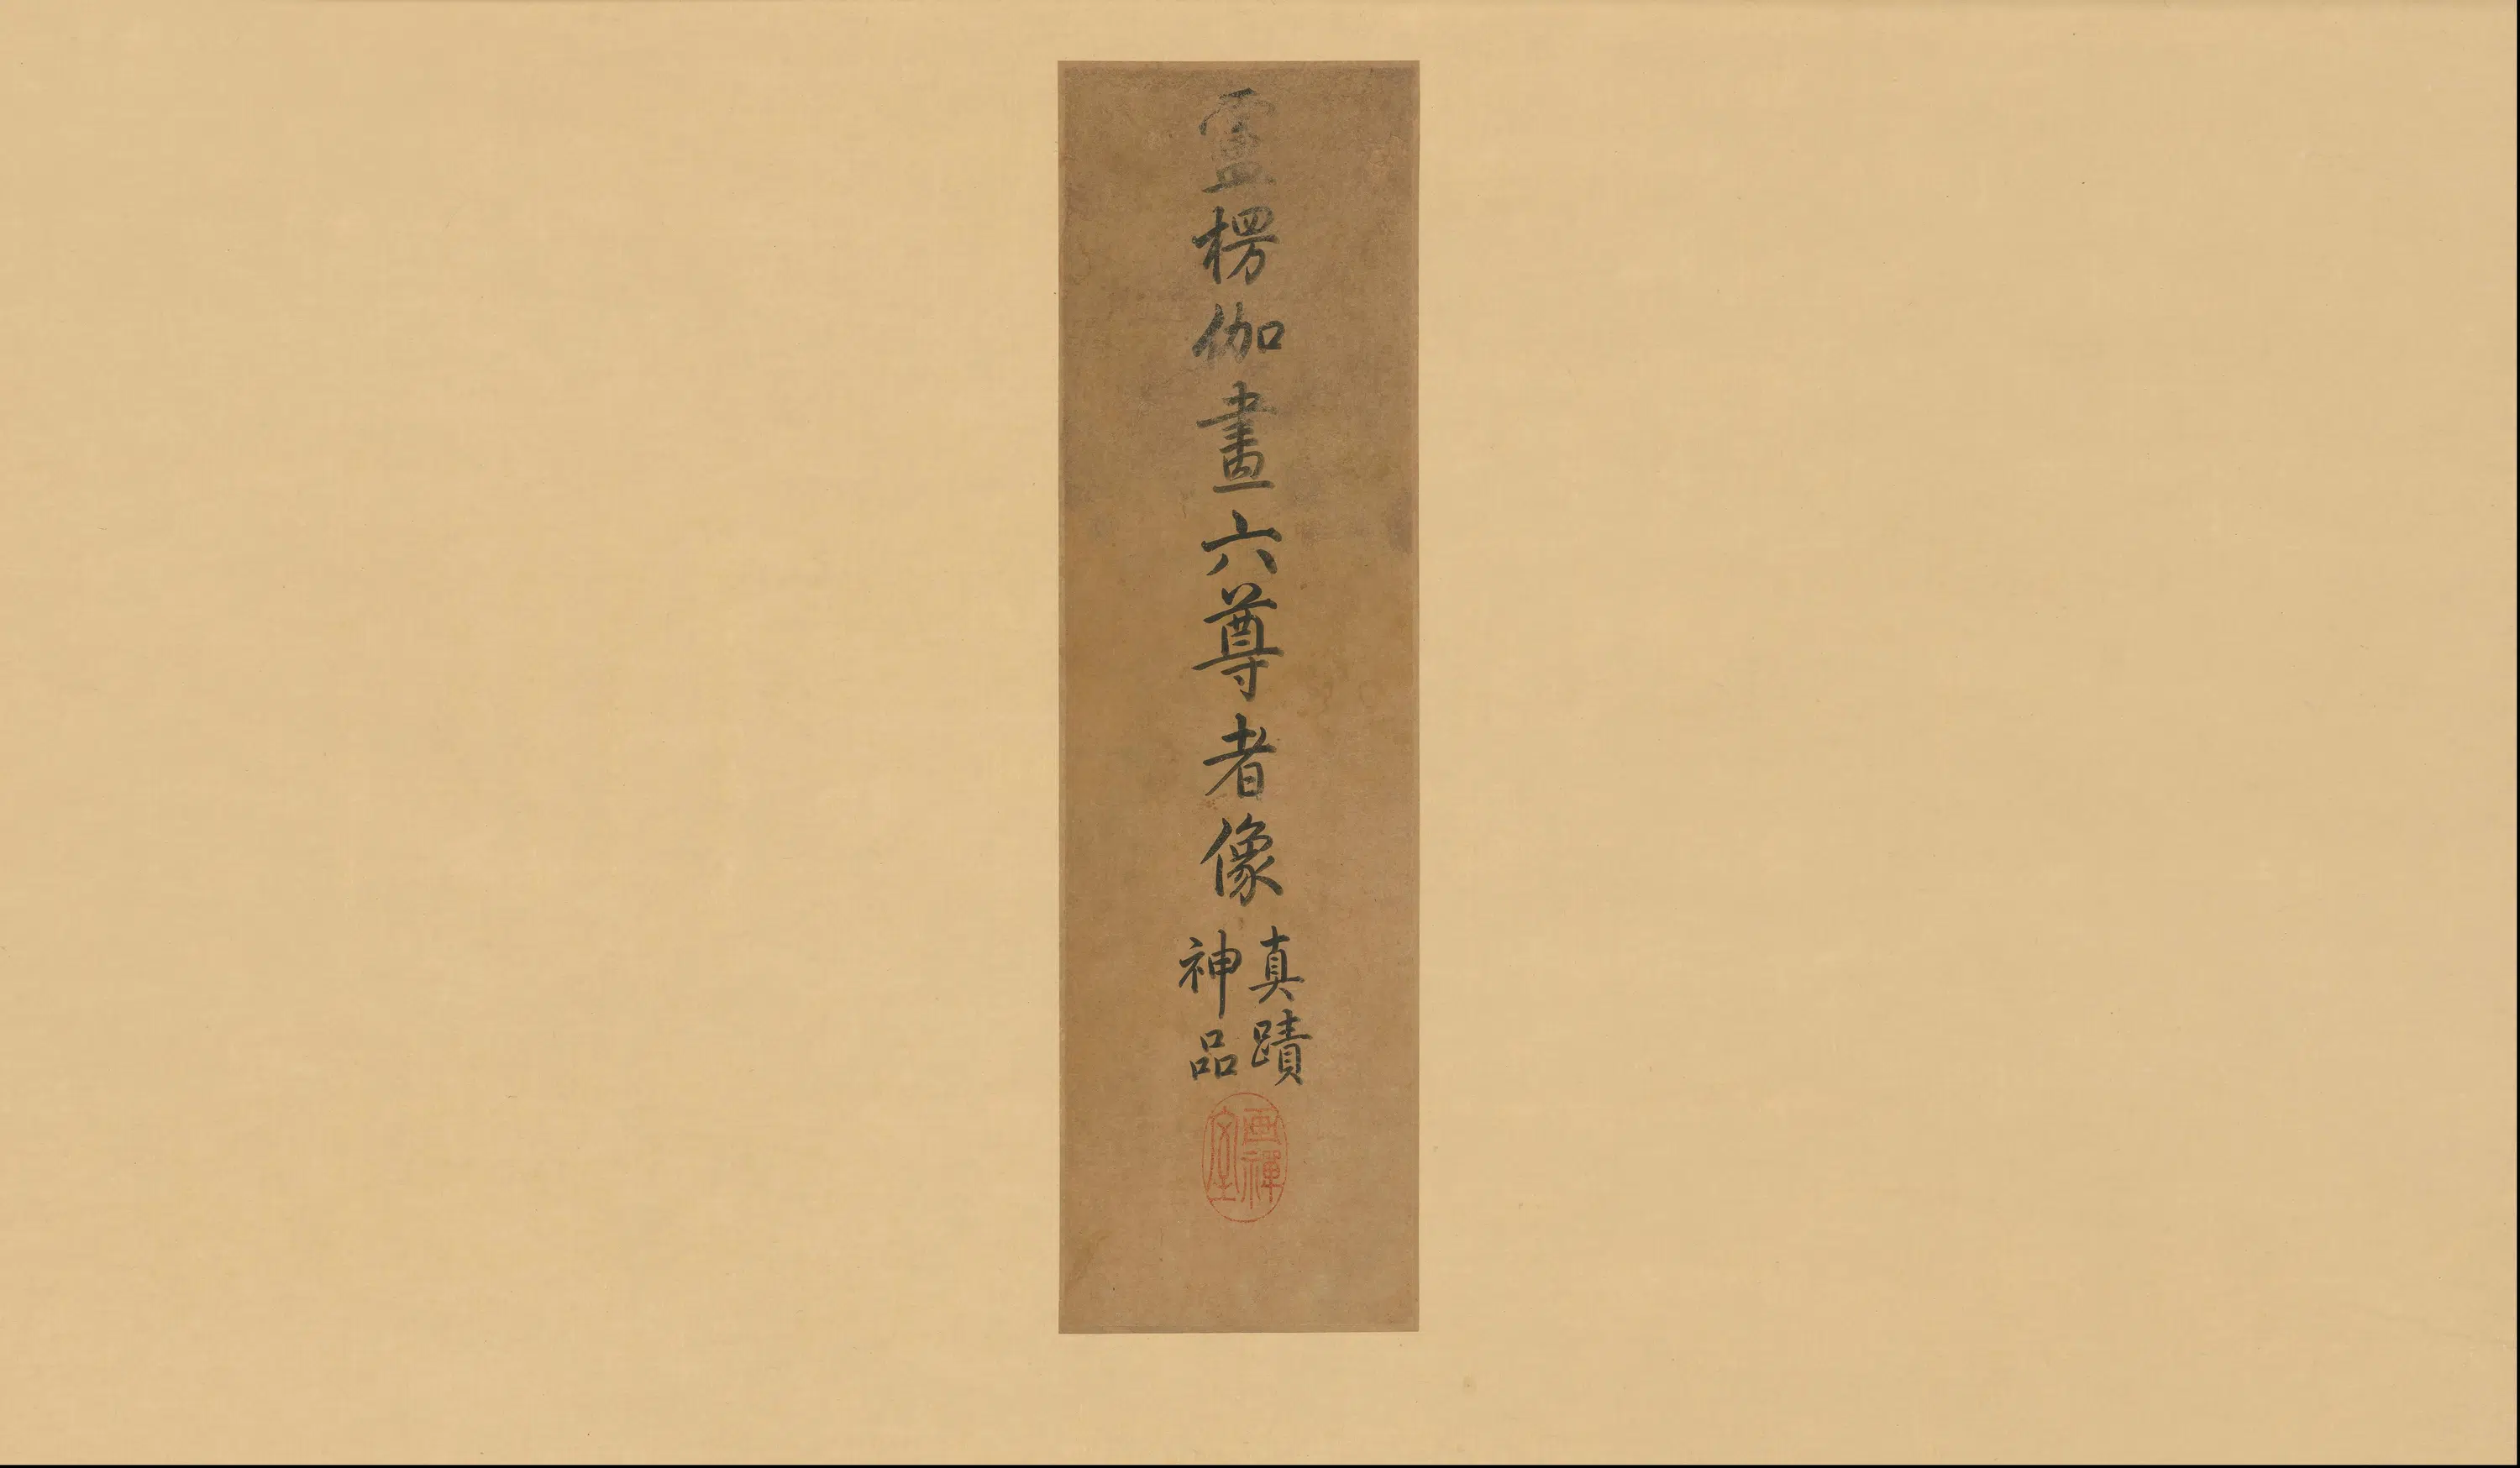 盧楞伽畫六尊者像
真蹟
神品
画禪室